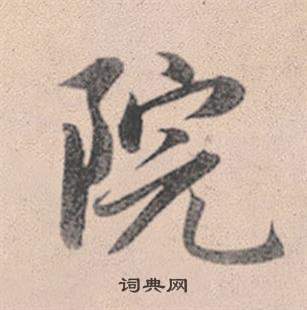 院
词典网